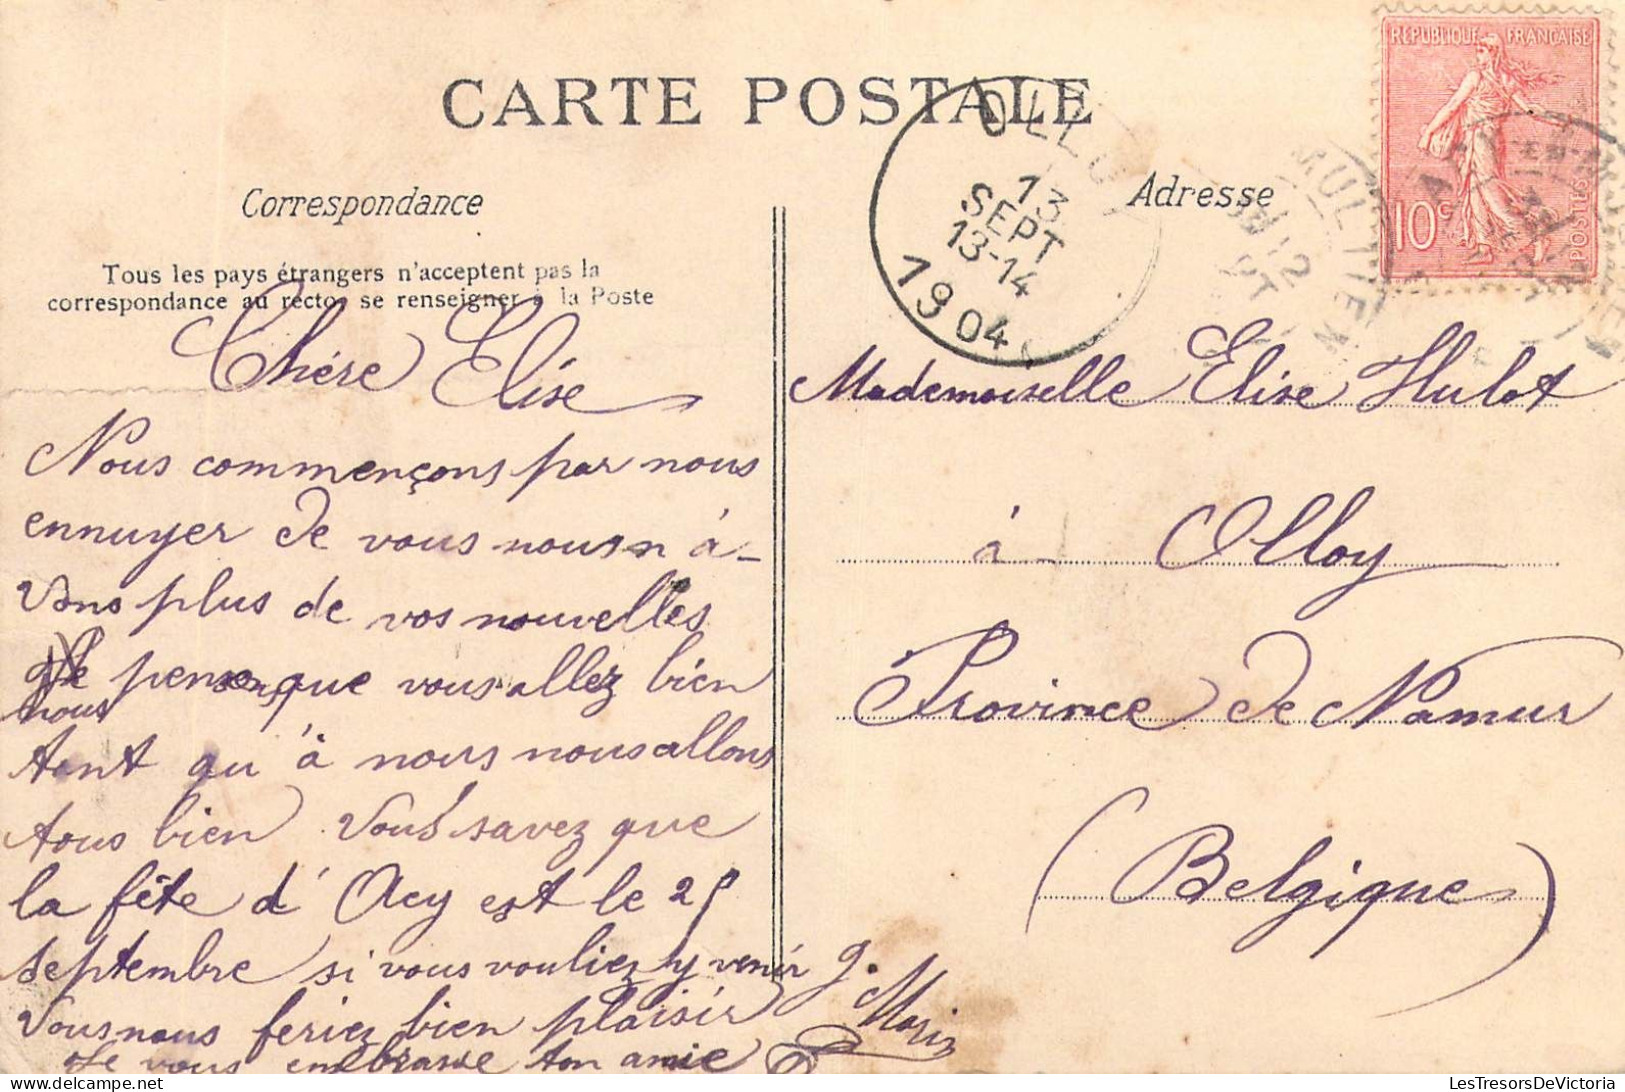 CARTE POSTALE
Correspondance
Tous les pays étrangers n'acceptent pas la
correspondance au recto, se renseigner à la Poste
Chére Elise
Nous commençons par nous
ennuyer de vous nous n'à-
vons plus de vos nouvelles
nous pensons que vous allez bien
tant qu'à nous nous allons
tous bien Vous savez que
la fête d'Acy est le 25
septembre si vous vouliez y venir
Vous nous feriez bien plaisir
Je vous embrasse ton amie
g. Marin
Adresse
Mademoiselle Elise Hulot
à Olloy
Province de Namur
(Belgique)
OLLOY
13
SEPT
13-14
1904
REPUBLIQUE FRANÇAISE
10c
POSTES
LesTresorsDeVictoria